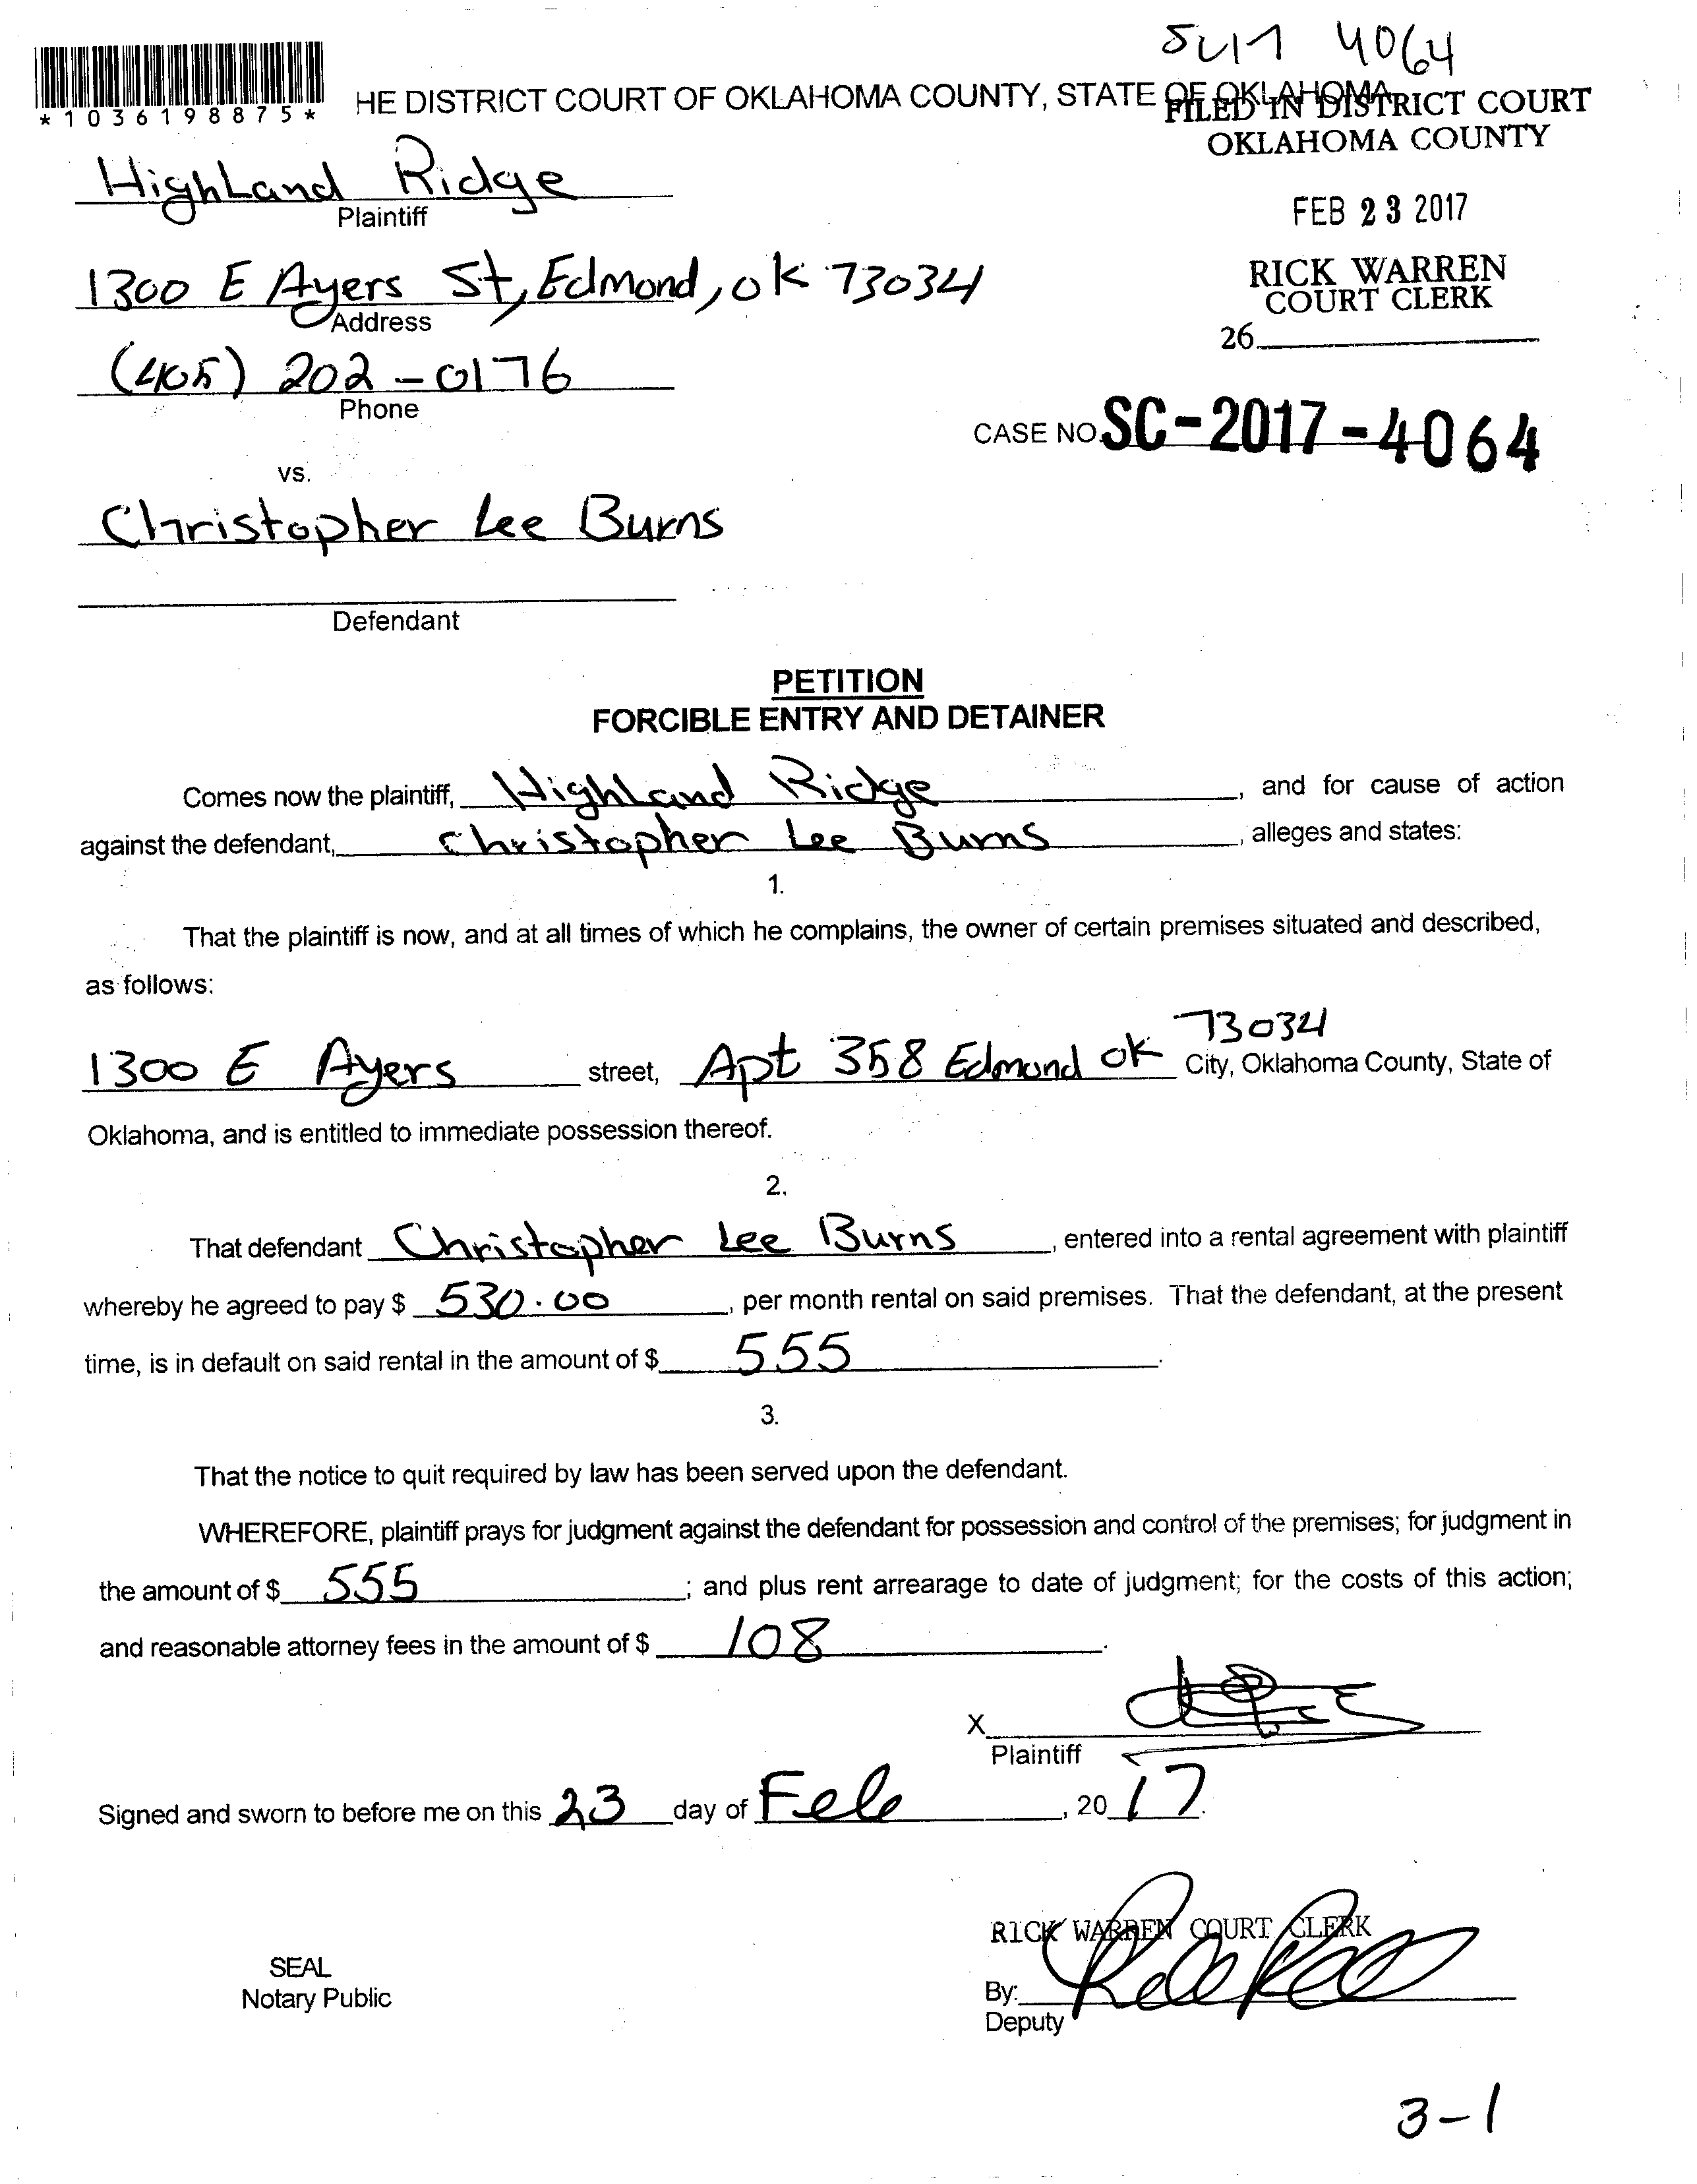 4064
*1036198875*
HE DISTRICT COURT OF OKLAHOMA COUNTY, STATE OF OKLAHOMA
FILED IN DISTRICT COURT
OKLAHOMA COUNTY
HighLand Ridge
Plaintiff
FEB 23 2017
1300 E Ayers St, Edmond, OK 73034
Address
RICK WARREN
COURT CLERK
26
(405) 202-0176
Phone
CASE NO. SC-2017-4064
vs.
Christopher Lee Burns
Defendant
PETITION
FORCIBLE ENTRY AND DETAINER
Comes now the plaintiff, HighLand Ridge, and for cause of action
against the defendant, Christopher Lee Burns, alleges and states:
1.
That the plaintiff is now, and at all times of which he complains, the owner of certain premises situated and described,
as follows:
73034
1300 E Ayers street, Apt 358 Edmond OK City, Oklahoma County, State of
Oklahoma, and is entitled to immediate possession thereof.
2.
That defendant Christopher Lee Burns, entered into a rental agreement with plaintiff
whereby he agreed to pay $ 530.00, per month rental on said premises. That the defendant, at the present
time, is in default on said rental in the amount of $ 555.
3.
That the notice to quit required by law has been served upon the defendant.
WHEREFORE, plaintiff prays for judgment against the defendant for possession and control of the premises; for judgment in
the amount of $ 555; and plus rent arrearage to date of judgment; for the costs of this action;
and reasonable attorney fees in the amount of $ 108.
X
Plaintiff
Signed and sworn to before me on this 23 day of Feb, 2017.
RICK WARREN COURT CLERK
SEAL
Notary Public
By:
Deputy
3-1